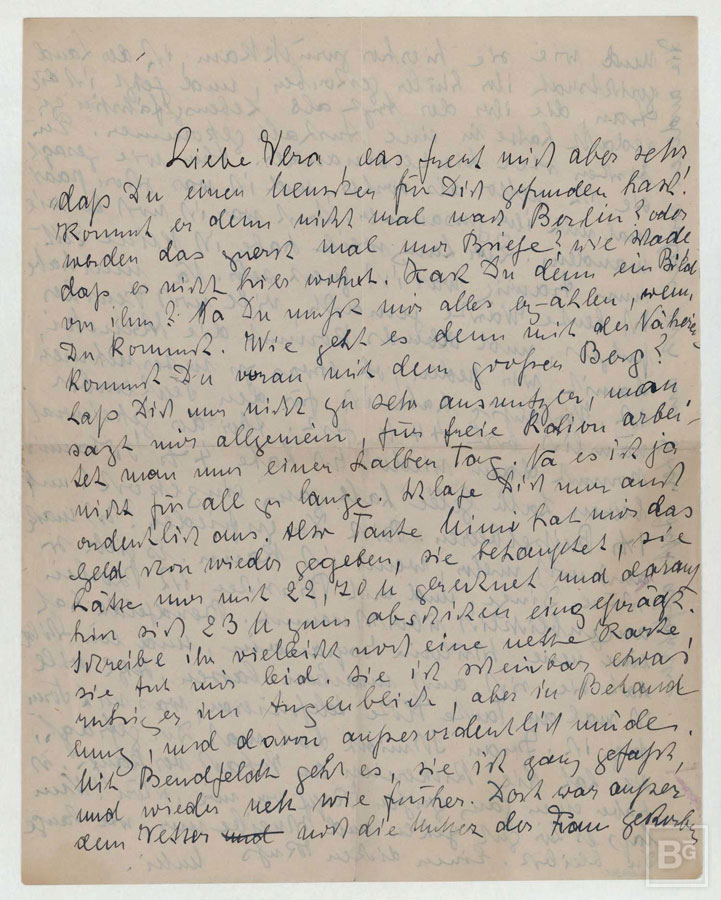 Liebe Vera das freut mich aber sehr
daß Du einen Menschen für Dich gefunden hast!
Kommt er denn nicht mal nach Berlin? oder
werden das zuerst mal nur Briefe? wie schade
daß er nicht hier wohnt. Hast Du denn ein Bild
von ihm? Na Du mußt mir alles erzählen, wenn
Du kommst. Wie geht es denn mit der Näherei,
kommst Du voran mit dem großen Berg?
Laß Dich nur nicht zu sehr ausnutzen, man
sagt mir allgemein, für freie Station arbei-
tet man nur einen halben Tag. Na es ist ja
nicht für all zu lange. Schlafe Dich nur auch
ordentlich aus. Also Tante Mimi hat mir das
Geld schon wieder gegeben, sie behauptet, sie
hätte nur mit 22,70 M gerechnet und daraufhin
sich 23 M zum abschicken eingeprägt.
Schreibe ihr vielleicht noch eine nette Karte,
sie tut mir leid. Sie ist scheinbar etwas
ruhiger im Augenblick, aber in Behand
lung, und davon außerordentlich müde.
Mit Bendfeldt geht es, sie ist ganz gefaßt,
und wieder nett wie früher. Dort war außer
dem Vetter und noch die Mutter der Frau gestorben
BG